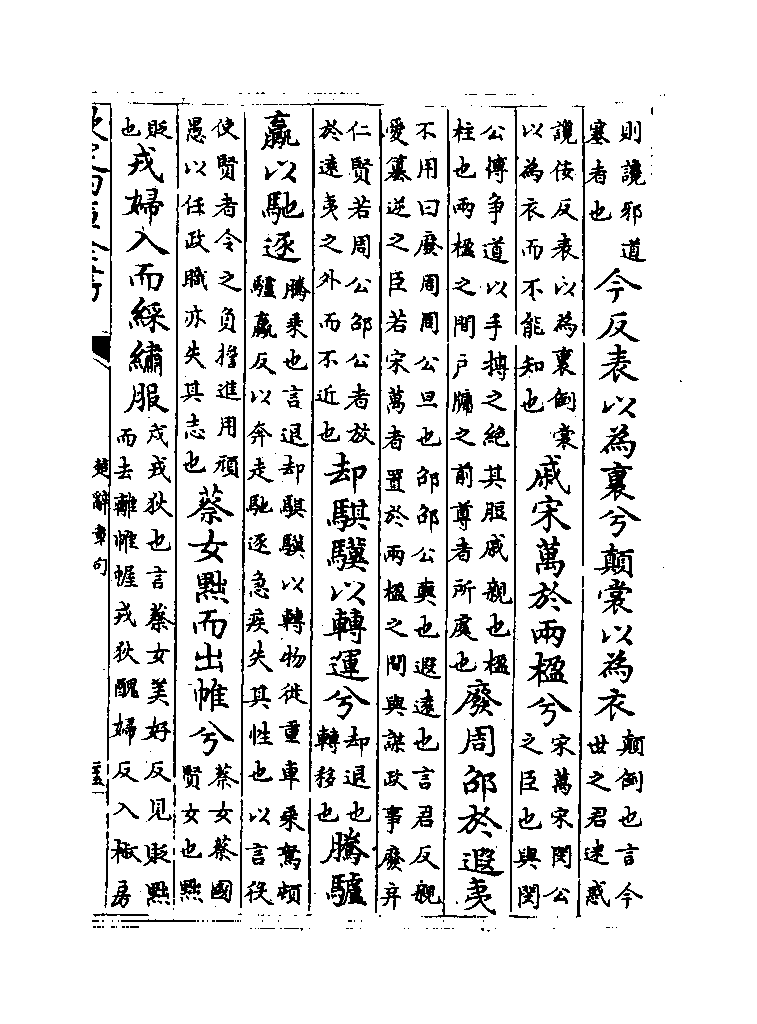 則讒邪道
塞者也
今反表以為裏兮顛裳以為衣
顛倒也言今
世之君迷惑
讒佞反表以為裏倒裳
以為衣而不能知也
戚宋萬於兩楹兮
宋萬宋閔公
之臣也與閔
公博争道以手搏之絶其脰戚親也楹
柱也兩楹之間戶牖之前尊者所處也
廢周邵於遐夷
不用曰廢周周公旦也邵邵公奭也遐逺也言君反親
愛簒逆之臣若宋萬者置於兩楹之間與謀政事廢弃
仁賢若周公邵公者放
於逺夷之外而不近也
却騏驥以轉運兮
却退也
轉移也
騰驢
驘以馳逐
騰乘也言退却騏驥以轉物徙重車乘駑頓
驢驘反以奔走馳逐急疾失其性也以言役
使賢者令之負擔進用頑
愚以任政職亦失其志也
蔡女黜而出帷兮
蔡女蔡國
賢女也黜
貶
也
戎婦入而綵繡服
戎戎狄也言蔡女美好反見貶黜
而去離帷幄戎狄醜婦反入椒房
欽定四庫全書
楚辭章句